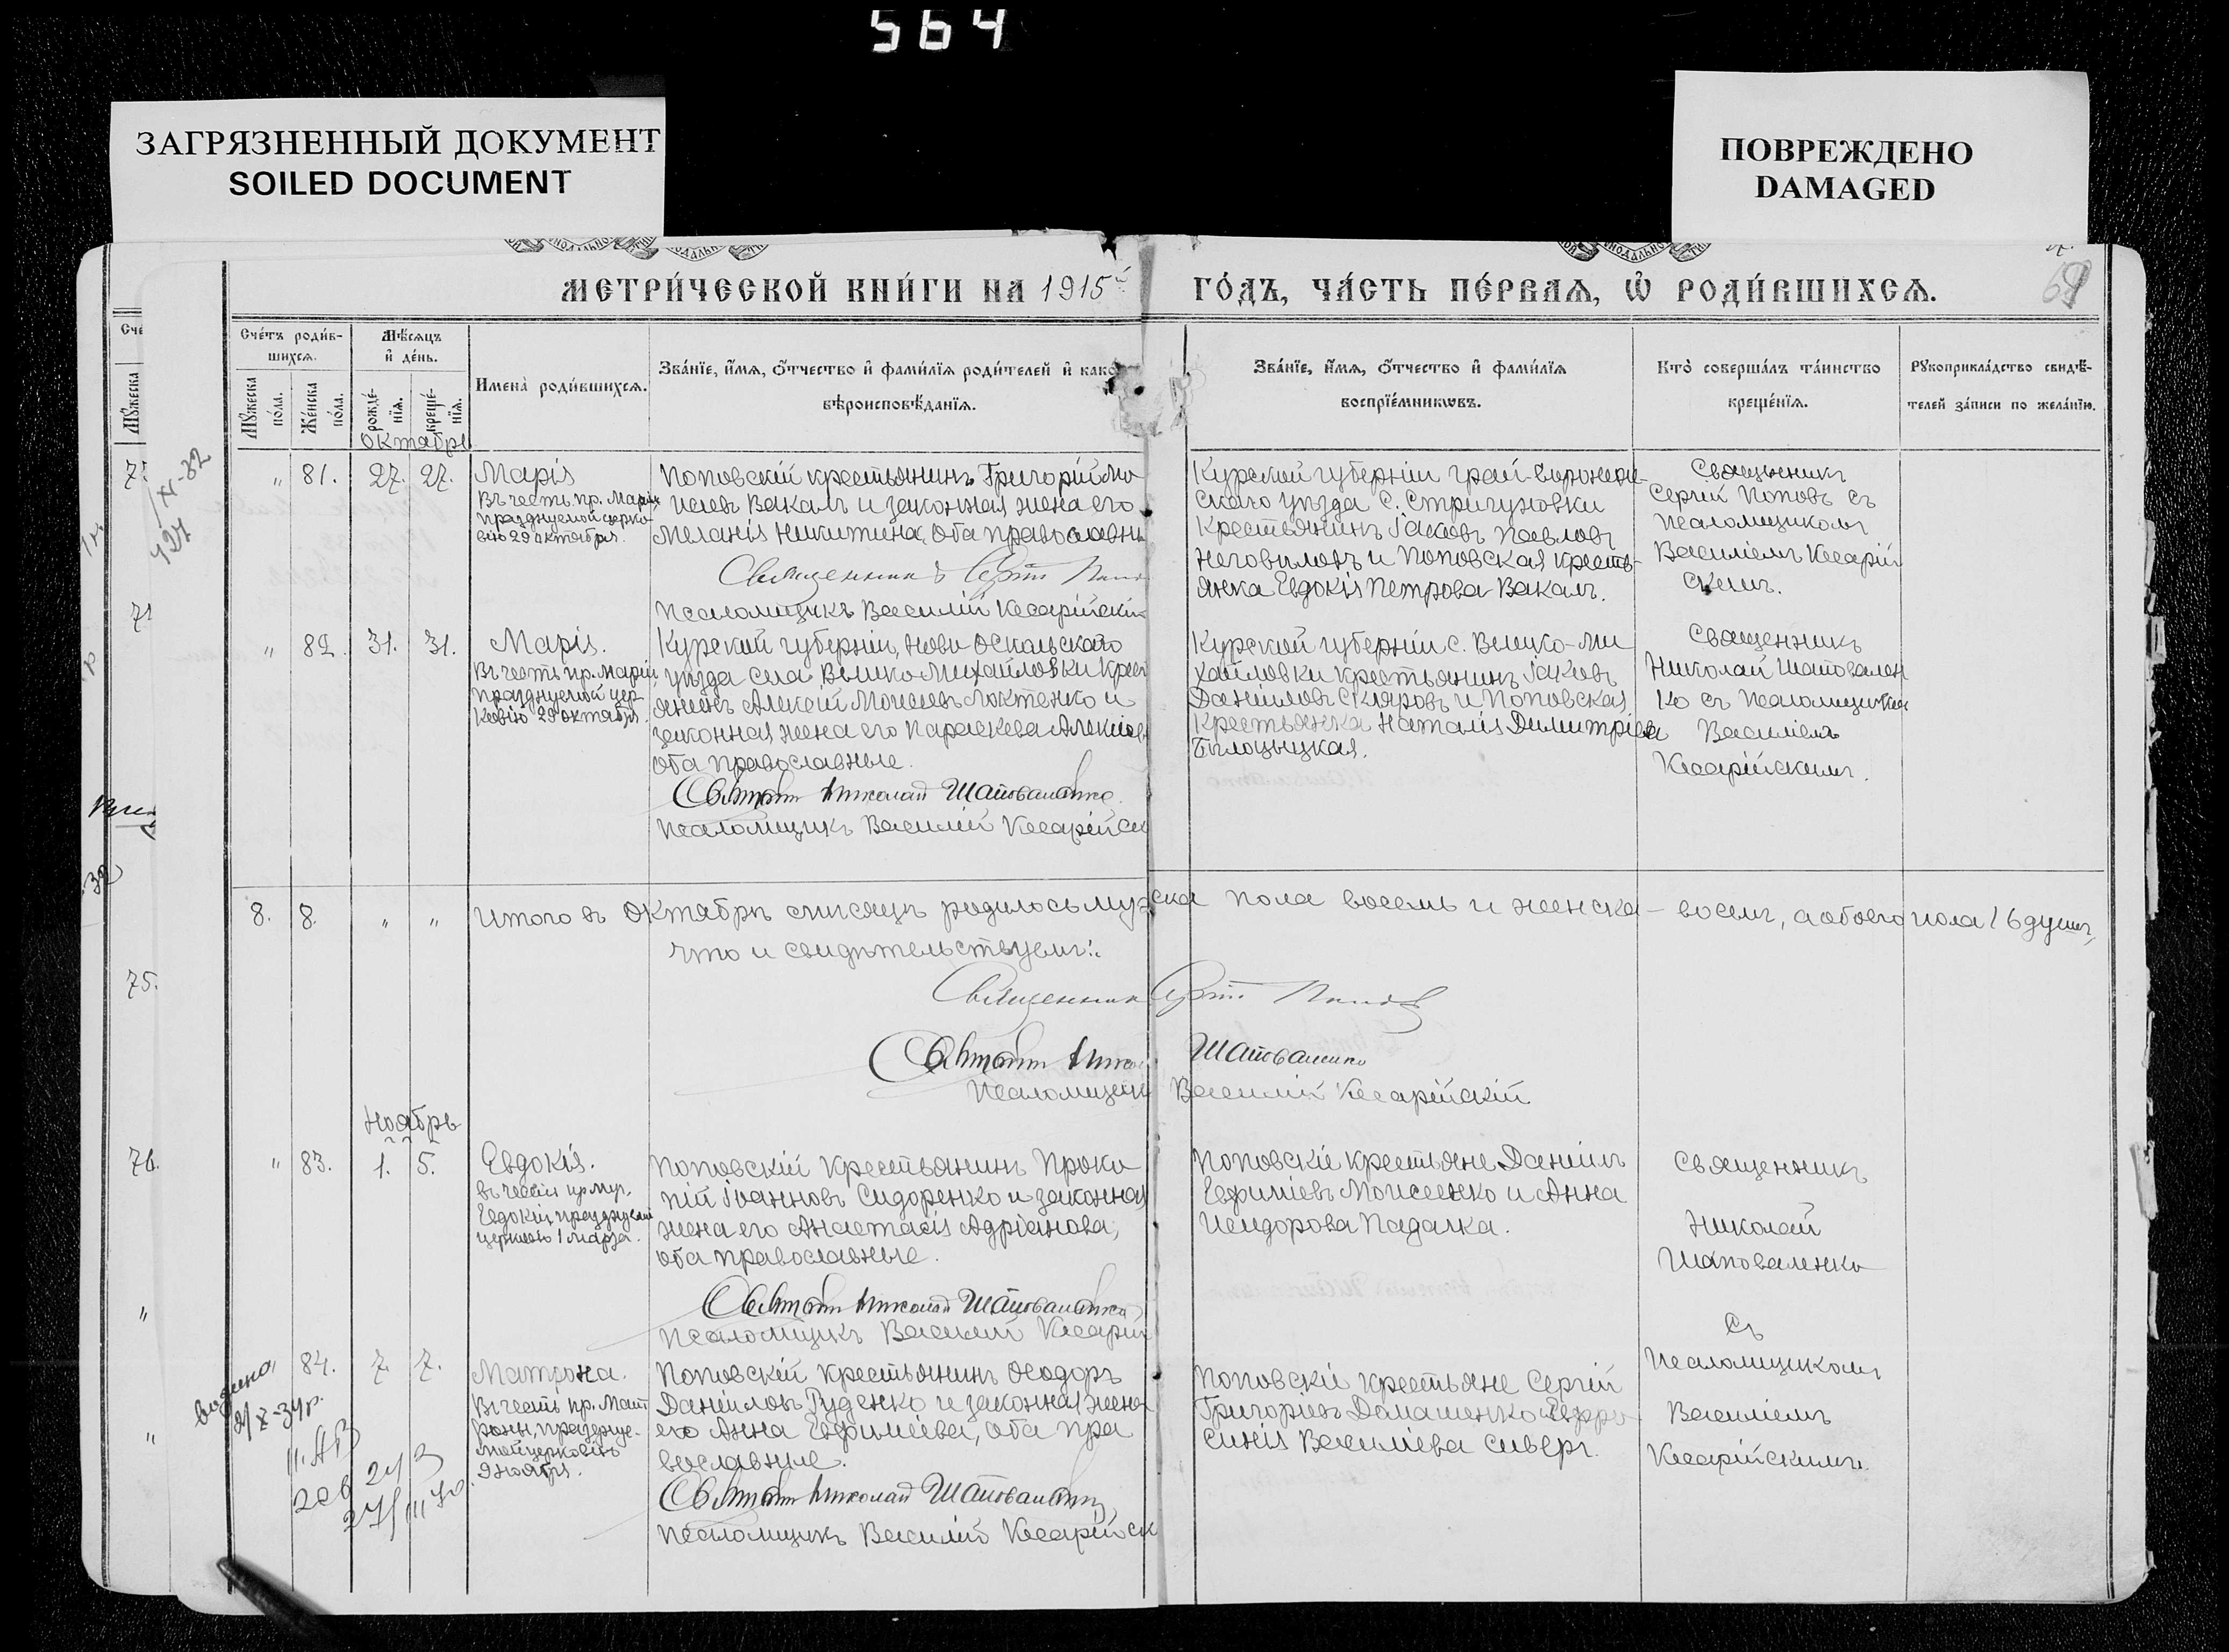 564
ЗАГРЯЗНЕННЫЙ ДОКУМЕНТ
SOILED DOCUMENT
ПОВРЕЖДЕНО
DAMAGED
МЕТРИ́ЧЕСКОЙ КНИ́ГИ НА 1915й ГО́ДЪ, ЧА́СТЬ ПЕ́РВАѦ, Ѡ҆ РОДИ́ВШИХСѦ.
69
Сче́тъ роди́в-
шихсѧ.
Мѣ́сѧцъ
и҆ де́нь.
Мꙋ́жеска
по́ла.
Же́нска
по́ла.
рожде́-
нїѧ.
креще́-
нїѧ.
Имена̀ роди́вшихсѧ.
Зва́нїе, и҆́мѧ, ѻ҆́тчество и҆ фами́лїѧ роди́телей и҆ како
вѣроисповѣ́данїѧ.
Зва́нїе, и҆́мѧ, ѻ҆́тчество и҆ фами́лїѧ
воспрїе́мникѡвъ.
Кто̀ соверша́лъ та́инство
креще́нїѧ.
Рꙋкоприкла́дство свидѣ́-
телей за́писи по жела́нїю.
Октябрь
" 81. 27. 27.
Марія
Въ честь пр. Маріи
празднуемой церко-
вію 29 октября.
Поповскій крестьянинъ Григорій Мо
исеевъ Вакалъ и законная жена его
Меланія Никитина, оба православны
Священникъ Сергій Попо
Псаломщикъ Василій Кесарійскій
Курской губерніи Грай-воронен-
скаго уѣзда с. Стригуновки
Крестьянинъ Іаковъ Павловъ
Неговыловъ и Поповская кресть-
янка Евдокія Петрова Вакалъ.
Священникъ
Сергій Поповъ съ
Псаломщикомъ
Василіемъ Кесарій
скимъ.
" 82. 31. 31.
Марія.
Въ честь пр. Маріи
празднуемой цер-
ковію 29 октября.
Курской губерніи, Ново Оскольскаго
уѣзда села Велико-Михайловки Крест
янинъ Алексій Моисеевъ Локтенко и
законная жена его Параскева Алексіева
оба православные.
Священникъ Николай Шаповаленко.
Псаломщикъ Василій Кесарійск
Курской губерніи с. Велико-Ми
хайловки крестьянинъ Іаковъ
Даніиловъ Скляровъ и Поповская
Крестьянка Наталія Димитріева
Бѣлоцыцкая.
Священникъ
Николай Шаповален
ко съ Псаломщикомъ
Василіемъ
Кесарійскимъ.
8. 8. " "
Итого въ Октябрѣ мѣсяцѣ родилось мужска пола восемь и женска - восемь, а обоего пола 16 душъ,
что и свидѣтельствуемъ:
Священникъ Сергій Поповъ
Священникъ Никол Шаповаленко
Псаломщикъ Василій Кесарійскій
Ноябрь
" 83. 1. 5.
Евдокія.
въ честь пр. муч.
Евдокіи, празднуемой
церковію 1 марта.
Поповскій Крестьянинъ Проко
пій Іоанновъ Сидоренко и законная
жена его Анастасія Адріанова,
оба православные.
Священникъ Николай Шаповаленко
Псаломщикъ Василій Кесарій
Поповскіе крестьяне Даніилъ
Евфиміевъ Моисеенко и Анна
Исидорова Падалка.
Священникъ
Николай
Шаповаленко
Съ
Псаломщикомъ
Василіемъ
Кесарійскимъ.
84. 7. 7.
Матрона.
Въ честь пр. Мат
роны, праздну-
мой церковію
9 ноября.
Поповскій Крестьянинъ Ѳеодоръ
Даніиловъ Руденко и законная жена
его Анна Евфиміева, оба пра
вославные.
Священникъ Николай Шаповаленко
Псаломщикъ Василій Кесарійск
Поповскіе крестьяне Сергій
Григоріевъ Домашенко и Евфро
синія Василіева Сиверъ.